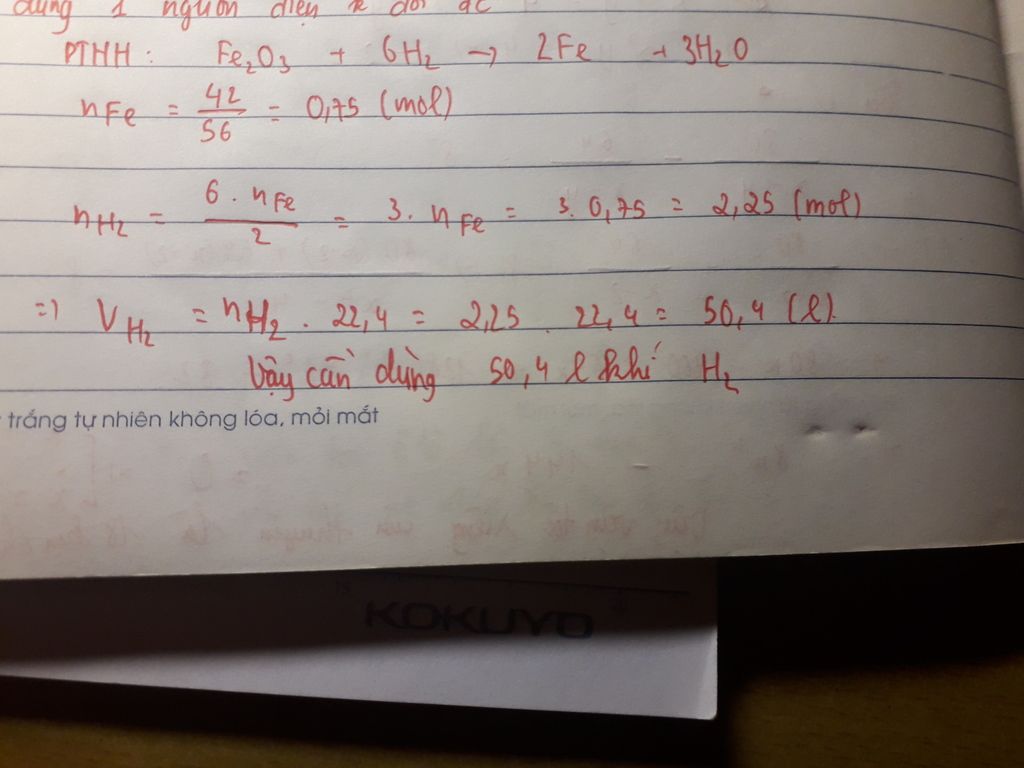 dụng 1 nguồn điện k đổi
PTHH: Fe2O3 + 6H2 → 2Fe + 3H2O
nFe = 42/56 = 0,75 (mol)
nH2 = 6 . nFe/2 = 3. nFe = 3. 0,75 = 2,25 (mol)
=> VH2 = nH2 . 22,4 = 2,25 . 22,4 = 50,4 (l).
Vậy cần dùng 50,4 l khí H2
trắng tự nhiên không lóa, mỏi mắt
KOKUYO